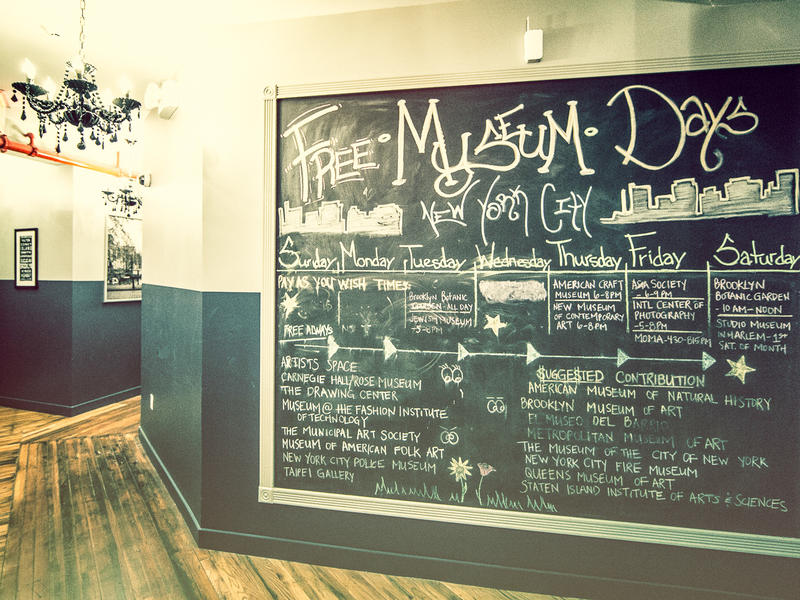 FREE · MUSEUM · DAYS
NEW YORK CITY
Sunday Monday Tuesday Wednesday Thursday Friday Saturday
PAY AS YOU WISH TIMES
BROOKLYN BOTANIC
GARDEN - ALL DAY
JEWISH MUSEUM
-5-8PM
AMERICAN CRAFT
MUSEUM 6-8PM
NEW MUSEUM
OF CONTEMPORARY
ART 6-8PM
ASIA SOCIETY
-6-9PM
INTL CENTER OF
PHOTOGRAPHY
-5-8PM
MOMA-430-815PM
BROOKLYN
BOTANIC GARDEN
-10AM-NOON
STUDIO MUSEUM
IN HARLEM-1ST
SAT. OF MONTH
FREE ALWAYS
ARTISTS SPACE
CARNEGIE HALL/ROSE MUSEUM
THE DRAWING CENTER
MUSEUM @ THE FASHION INSTITUTE
OF TECHNOLOGY
THE MUNICIPAL ART SOCIETY
MUSEUM OF AMERICAN FOLK ART
NEW YORK CITY POLICE MUSEUM
TAIPEI GALLERY
SUGGESTED CONTRIBUTION
AMERICAN MUSEUM OF NATURAL HISTORY
BROOKLYN MUSEUM OF ART
EL MUSEO DEL BARRIO
METROPOLITAN MUSEUM OF ART
THE MUSEUM OF THE CITY OF NEW YORK
NEW YORK CITY FIRE MUSEUM
QUEENS MUSEUM OF ART
STATEN ISLAND INSTITUTE OF ARTS & SCIENCES